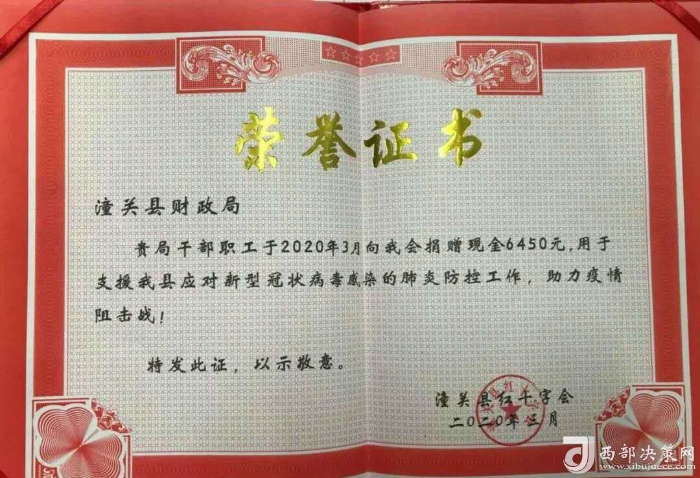 荣誉证书
潼关县财政局
贵局干部职工于2020年3月向我会捐赠现金6450元,用于
支援我县应对新型冠状病毒感染的肺炎防控工作，助力疫情
阻击战！
特发此证，以示敬意。
潼关县红十字会
二〇二〇年三月
西部决策网
www.xibujuece.com